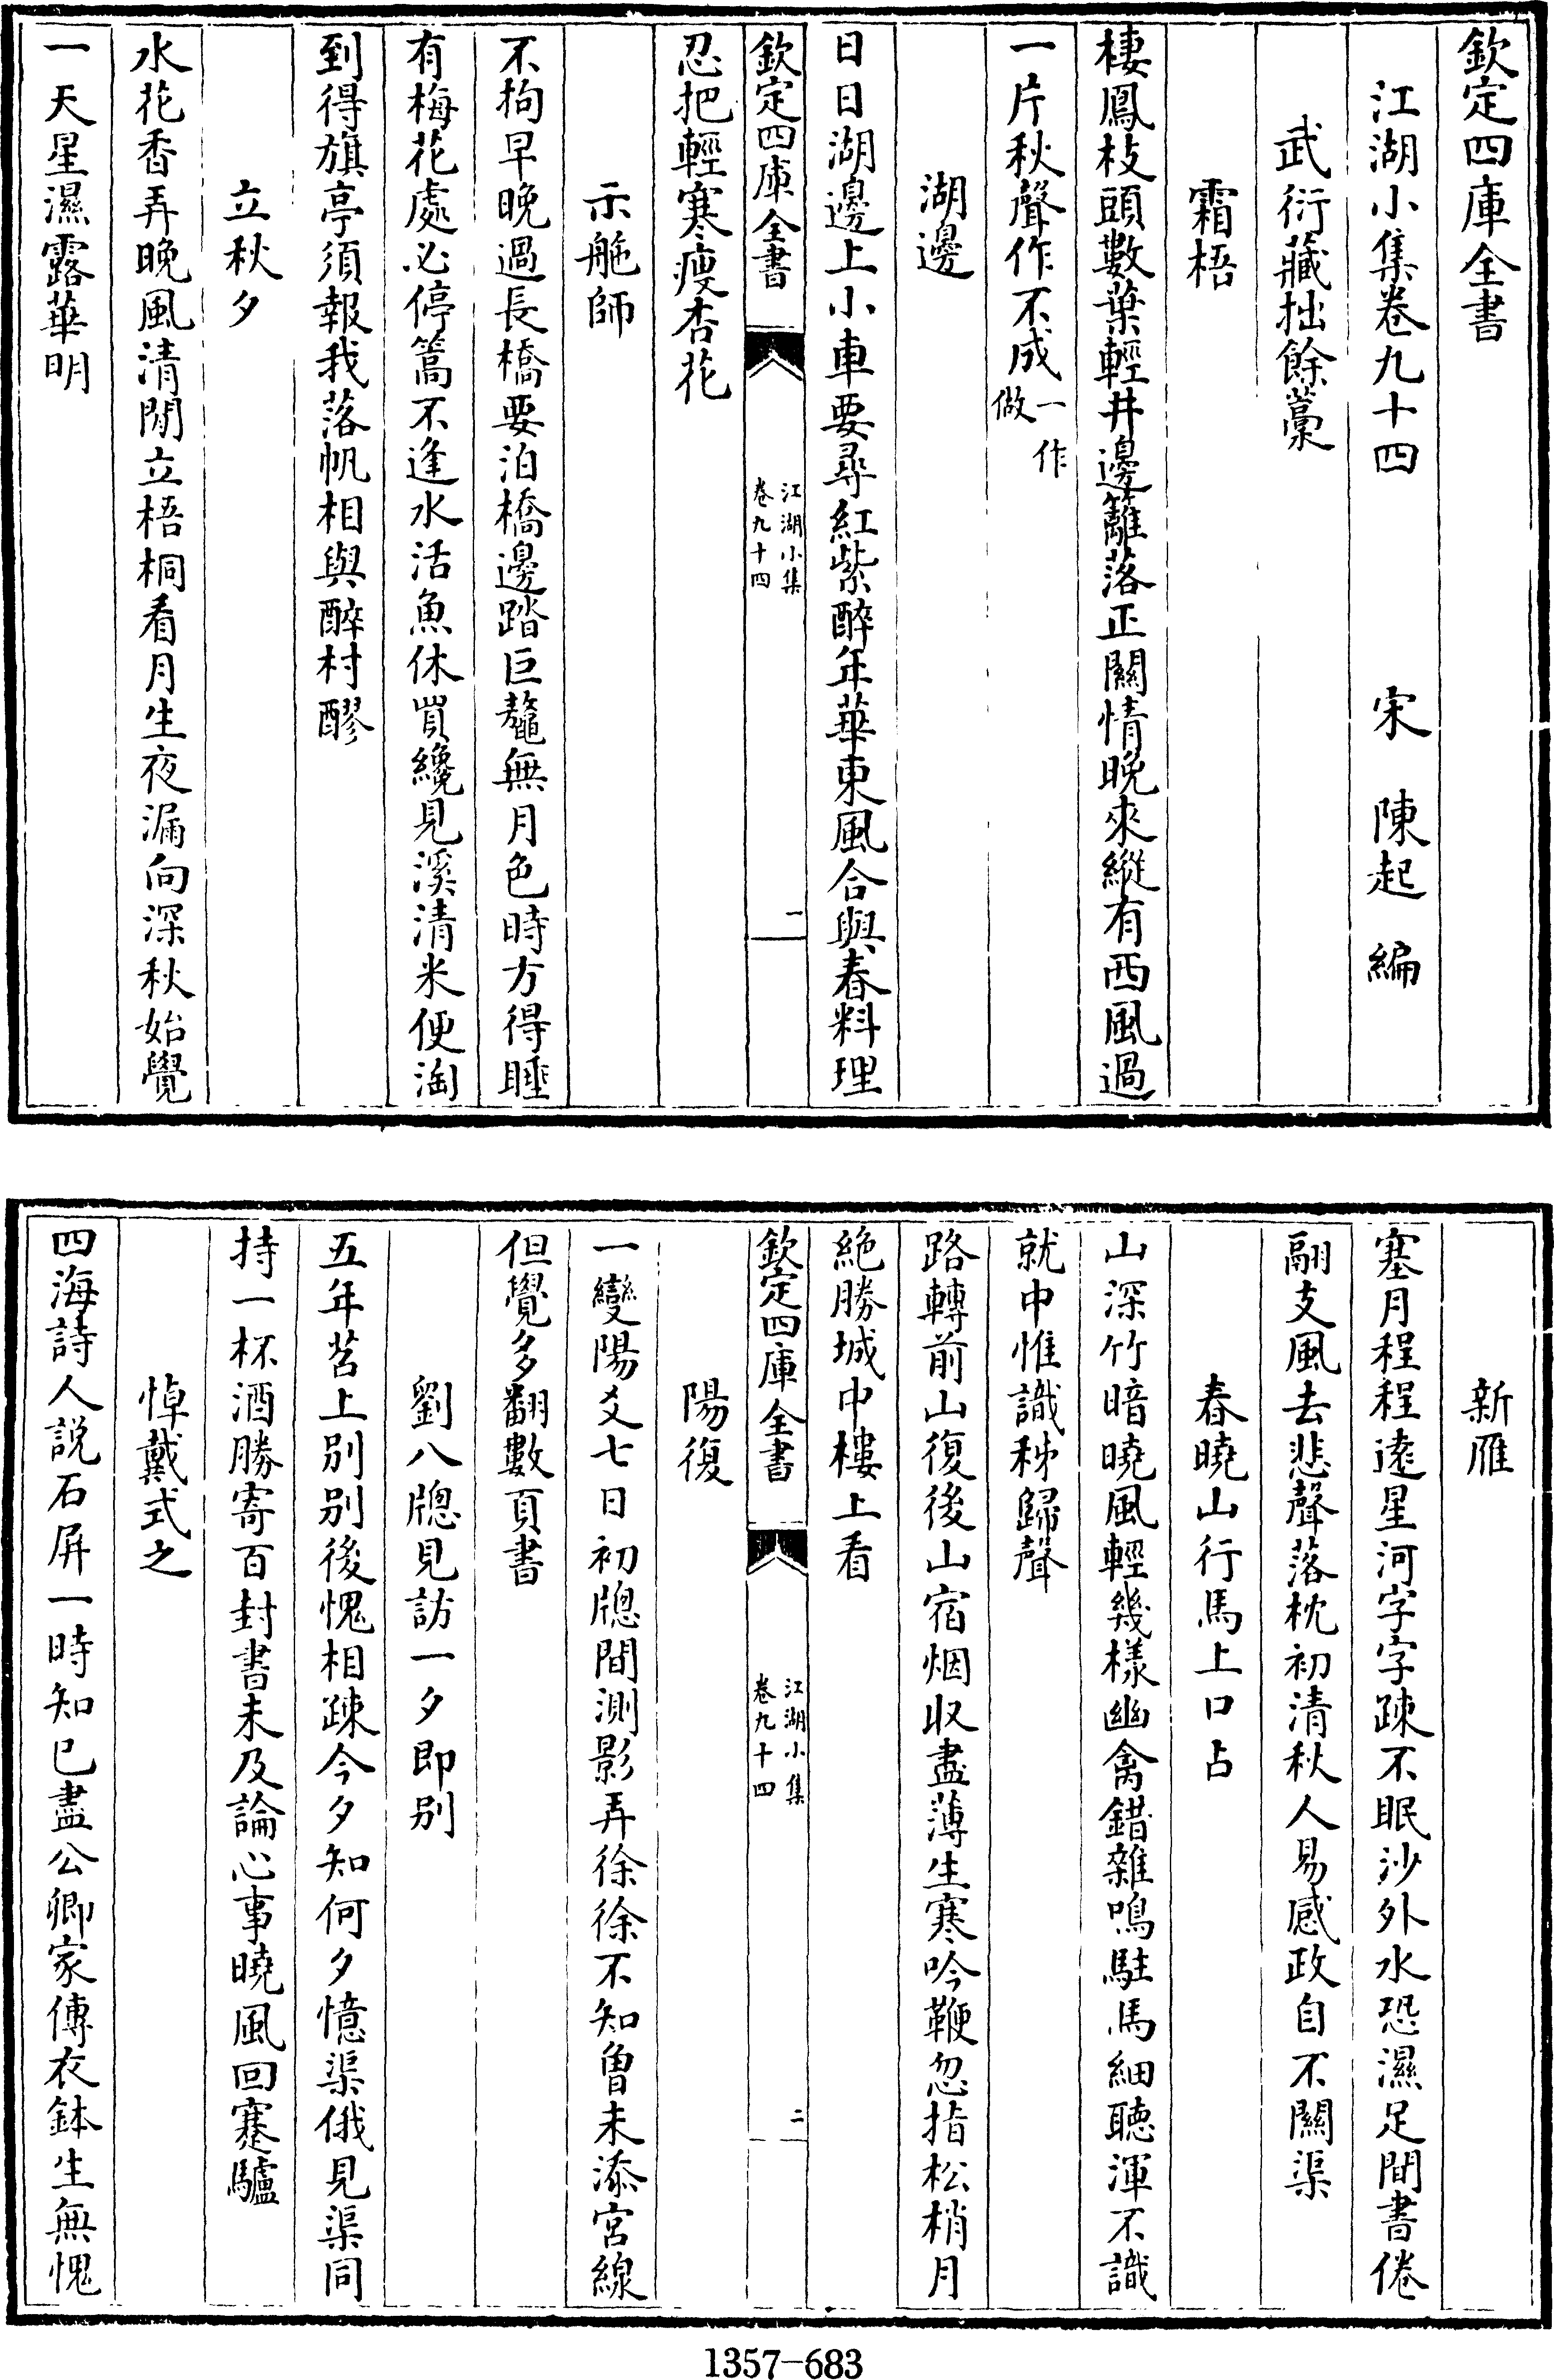 欽定四庫全書
江湖小集卷九十四　宋　陳起　編
武衍藏拙餘藁
霜梧
棲鳳枝頭數葉輕井邊籬落正關情晚來縱有西風過
一片秋聲作不成一作做
湖邊
日日湖邊上小車要尋紅紫醉年華東風合與春料理
欽定四庫全書　江湖小集卷九十四　一
忍把輕寒瘦杏花
示舵師
不拘早晚過長橋要泊橋邊踏巨鼇無月色時方得睡
有梅花處必停篙不逢水活魚休買纔見溪清米便淘
到得旗亭須報我落帆相與醉村醪
立秋夕
水花香弄晚風清閒立梧桐看月生夜漏向深秋始覺
一天星濕露華明
新雁
塞月程程遠星河字字疎不眠沙外水恐濕足間書倦
翮支風去悲聲落枕初清秋人易感政自不關渠
春曉山行馬上口占
山深竹暗曉風輕幾樣幽禽錯雜鳴駐馬細聽渾不識
就中惟識秭歸聲
路轉前山復後山宿烟收盡薄生寒吟鞭忽指松梢月
絶勝城中樓上看
欽定四庫全書　江湖小集卷九十四　二
陽復
一變陽爻七日初牕間測影弄徐徐不知魯未添宮線
但覺多翻數頁書
劉八牕見訪一夕即别
五年苕上别别後愧相疎今夕知何夕憶渠俄見渠同
持一杯酒勝寄百封書未及論心事曉風回蹇驢
悼戴式之
四海詩人說石屏一時知己盡公卿家傳衣鉢生無愧
1357-683